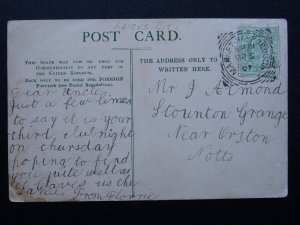 POST CARD.
THIS SPACE MAY NOW BE USED FOR
COMMUNICATION TO ANY PART OF
THE UNITED KINGDOM.
BACK ONLY TO BE USED FOR FOREIGN
POSTAGE (see Postal Regulations).
THE ADDRESS ONLY TO BE
WRITTEN HERE.
Dear Uncle
Just a few lines
to say it is your
third, club night
on thursday
hoping to find
you quite well as
it leaves us the
same From Florrie
Mr J Almond
Staunton Grange
Near Orston
Notts